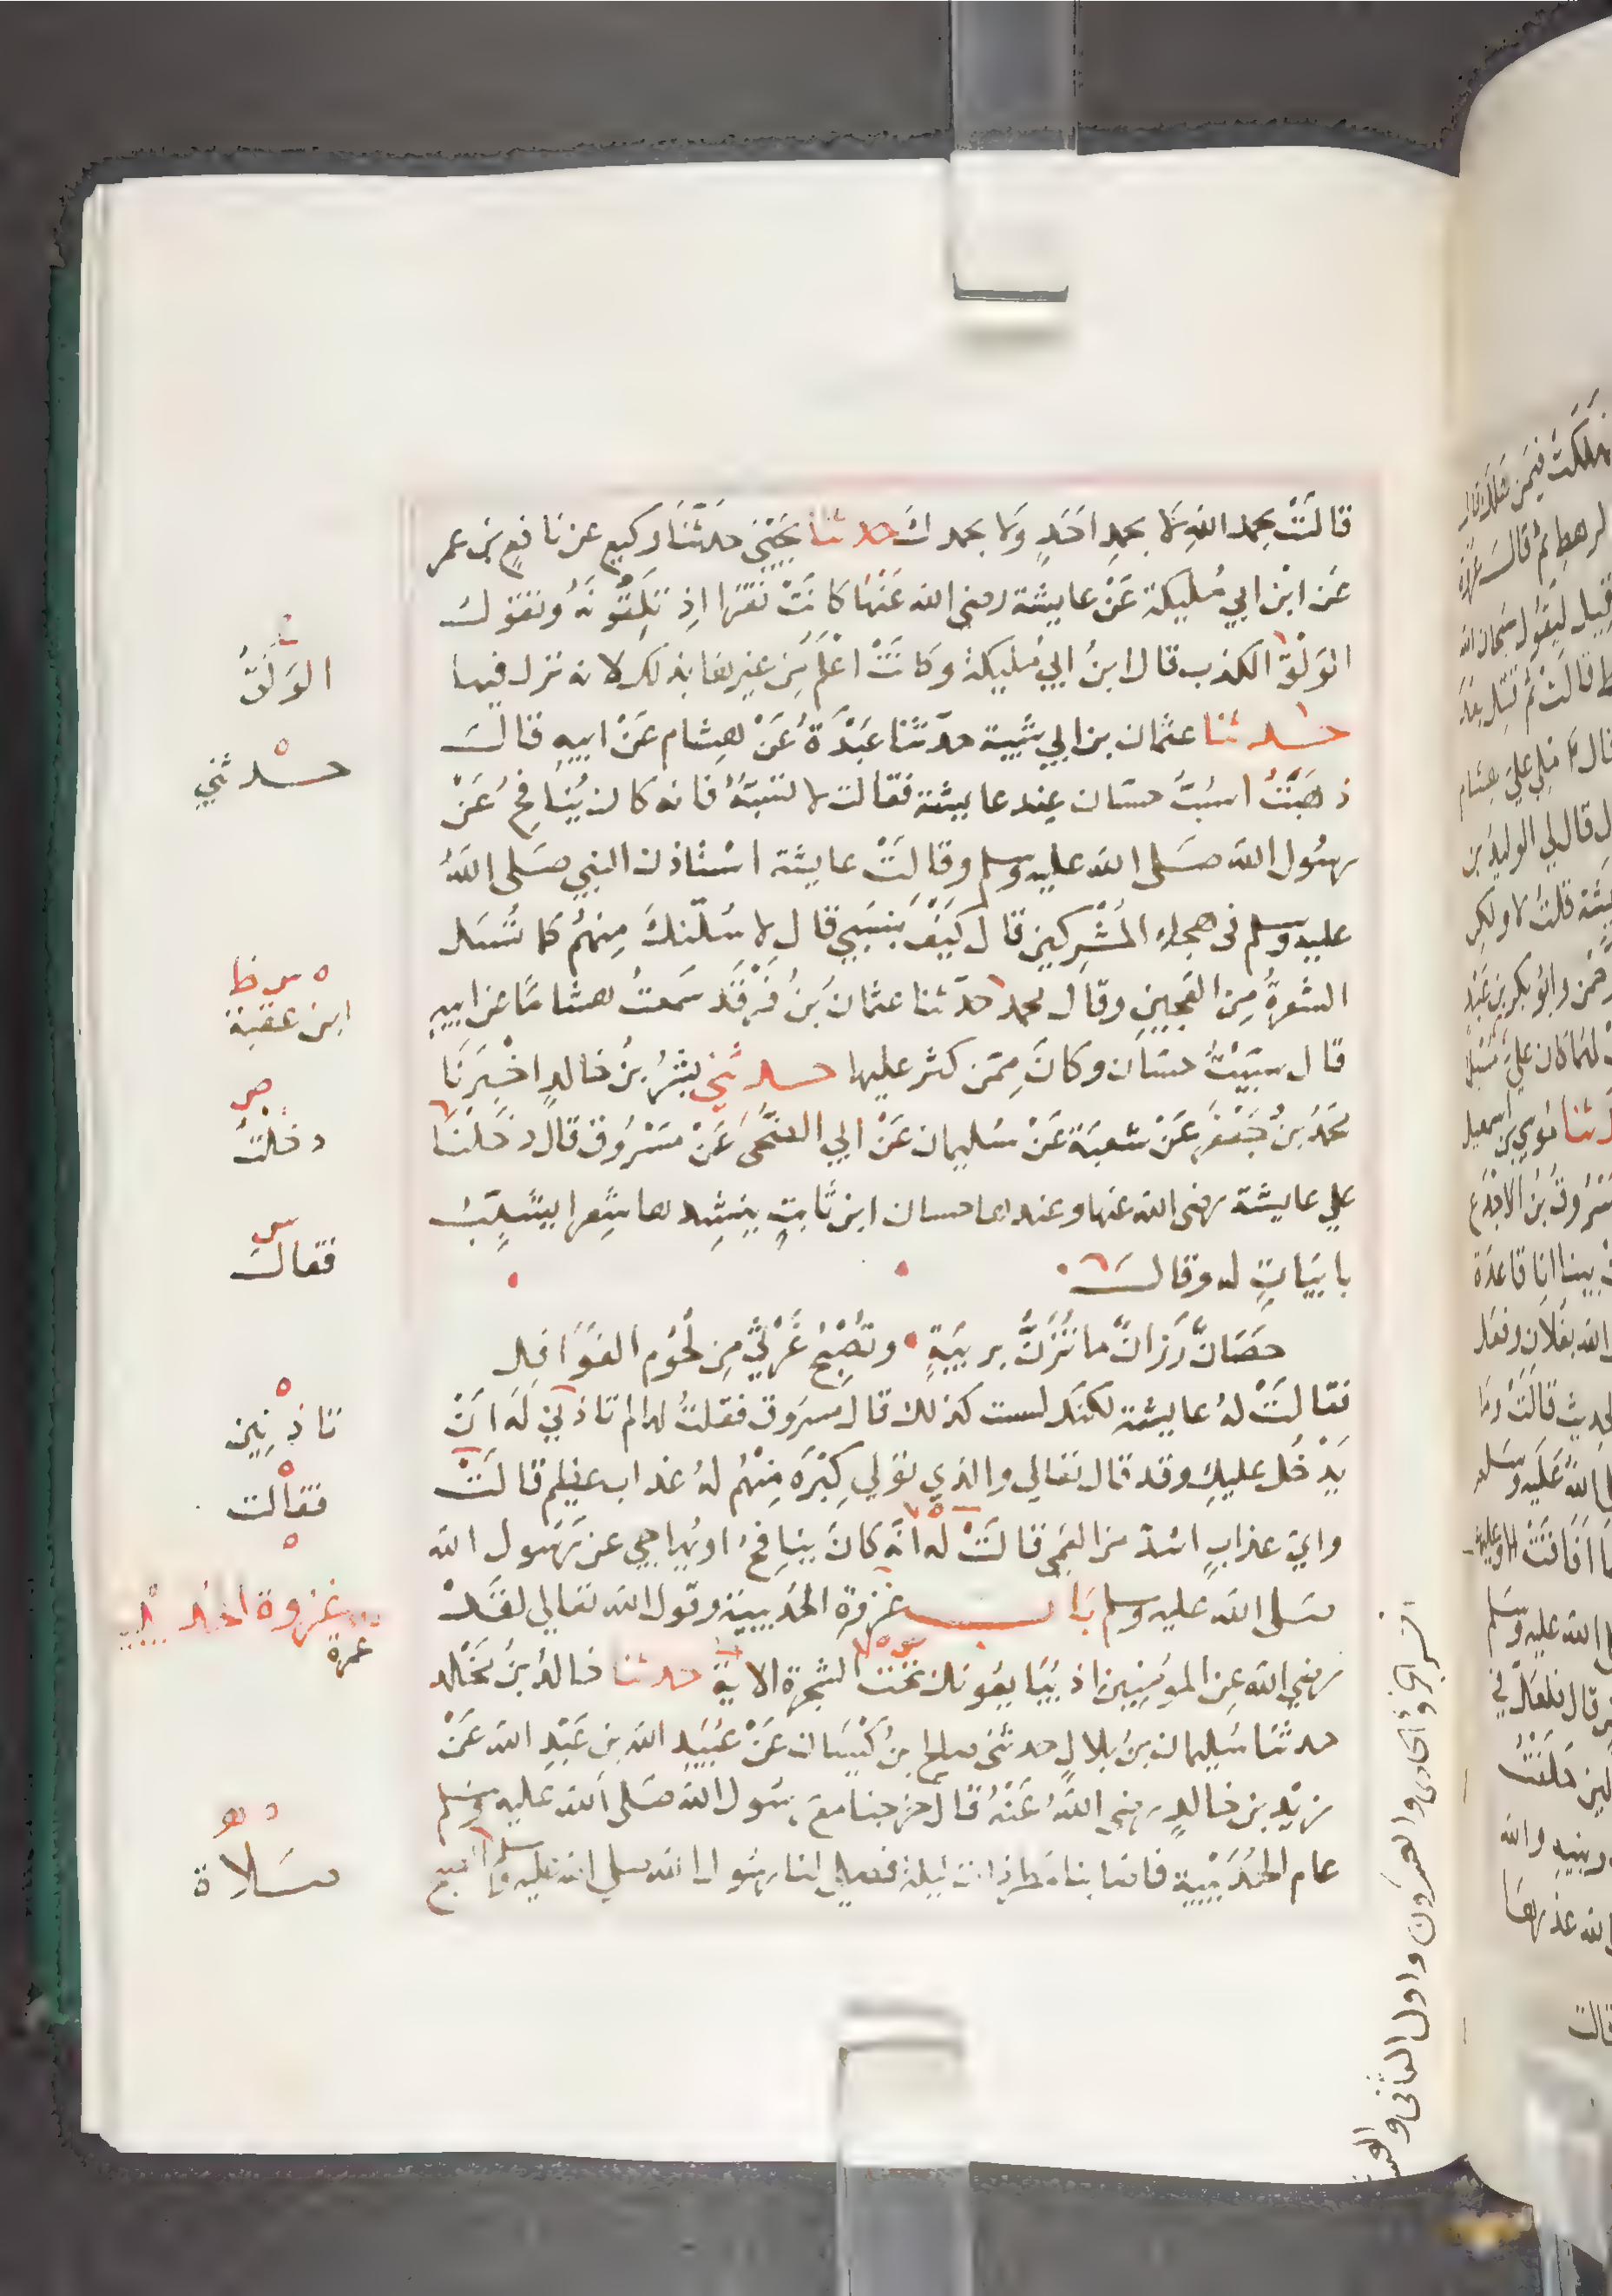 قالَتْ بحمد اللهِ لا بحمدِ احَدٍ ولا بحمدك حدثنا يَحْيَى حدثنا وكيع عن نافع بن عمر
عَن ابْن ابي مُليكة عَنْ عايشة رضى الله عَنْهَا كانَتْ تقرَا اذ تَلِقُونَهُ وتقول
الوَلْقُ الكذب قال ابنُ ابي مُليكة وكانَتْ اعْلَمَ مِن غيرها بذلك لانه نزل فيها
حدثنا عثمان بن ابي شيبة حدّثنا عَبْدَةُ عَنْ هِشام عَنْ ابيهِ قالَ
ذهَبْتُ اسُبُّ حسّان عِند عايشة فقالت لا تسُبَّهُ فانه كان يُنَافِحُ عَنْ
رسُول الله صَلى الله عليه وسلم وقالَتْ عايشة اسْتاذن النبي صَلى اللهُ
عليه وسلم فى هِجاءِ المُشْرِكين قال كَيْفَ بِنسَبِي قال لاسُلّنكَ مِنهُم كما تُسَل
الشعرةُ مِن العَجِينِ وقال محمد حدّثنا عثمان بنُ فَرْقَد سَمعتُ هشامًا عن ابيهِ
قال سَبَبْتُ حسّان وكانَ مِمّن كثر عليها حدثني بِشرُ بنُ خالدٍ اخْبرَنا
محمَدُ بنُ جَعْفر عَنْ شعبَة عَنْ سُليمان عَنْ ابي الضُّحَى عَنْ مسْرُوق قال دخلْنا
علي عايشة رضى الله عنها وعندها حسان ابن ثابتٍ يُنِشِدها شِعرا يشَبِّبُ
بابيَاتٍ له وقالَ
حَصَانٌ رَزانٌ ما تُزَنُّ بريبَةٍ وتُصْبِحُ غَرْثى مِن لُحُوم الغَوَافِل
فقالَتْ لهُ عايشة لكنك لست كذلك قال مسرُوق فقلتُ لها لم تاذني لَهُ اَنْ
يَدْخُل عليكِ وقد قال تعالي والذي تولي كِبْرَه مِنْهُم لهُ عذاب عظيم قالَتْ
وايّ عذابٍ اشدّ من العَمى قالَتْ له انّه كانَ ينافِحُ او يُهاجي عن رَسُول الله
صَلى الله عليه وسلم باب غزوة الحُدَيبيَة وقول الله تعالي لقَدْ
رضِي الله عِن المُومِنِين اذ يُبَايعُونك تحت الشجرة الاية حدثنا خالدُ بنُ مَخْلد
حدثنا سُليمان بنُ بلالٍ حدثنى صالح بنُ كَيْسَان عَنْ عُبَيْدِ الله بنِ عَبْدِ الله عَنْ
زيْد بن خالدٍ رضِي اللهُ عَنْهُ قال خرجنا مع رسُول الله صَلى الله عليه وسلم
عام الحُدَيْبية فاصابنا مطر ذات ليلة فصلى لنا رسُول الله صلى الله عليه وسلم الصبح
الوَلَقُ
حدثني
ه س ظ
ابن عقبة
ص
دخلتُ
س
فقالَ
ه
تاذنِين
ه
فقالت
ه
غزوة الحديبية
عمرة
صَلاة